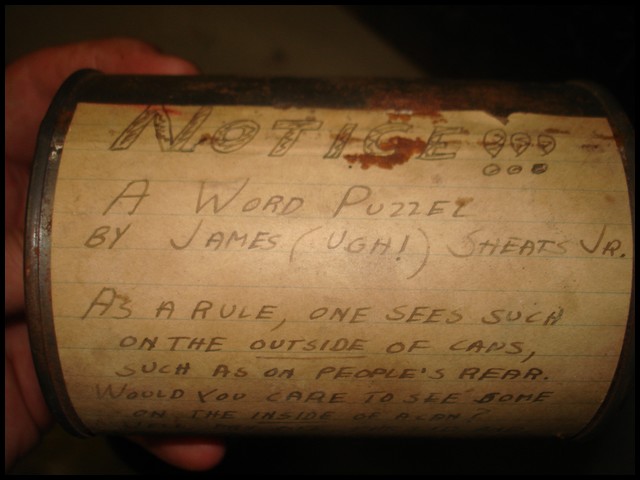 NOTICE!!!
A WORD PUZZEL
BY JAMES (UGH!) SHEATS JR.
AS A RULE, ONE SEES SUCH
ON THE OUTSIDE OF CANS,
SUCH AS ON PEOPLE'S REAR.
WOULD YOU CARE TO SEE SOME
ON THE INSIDE OF A CAN?